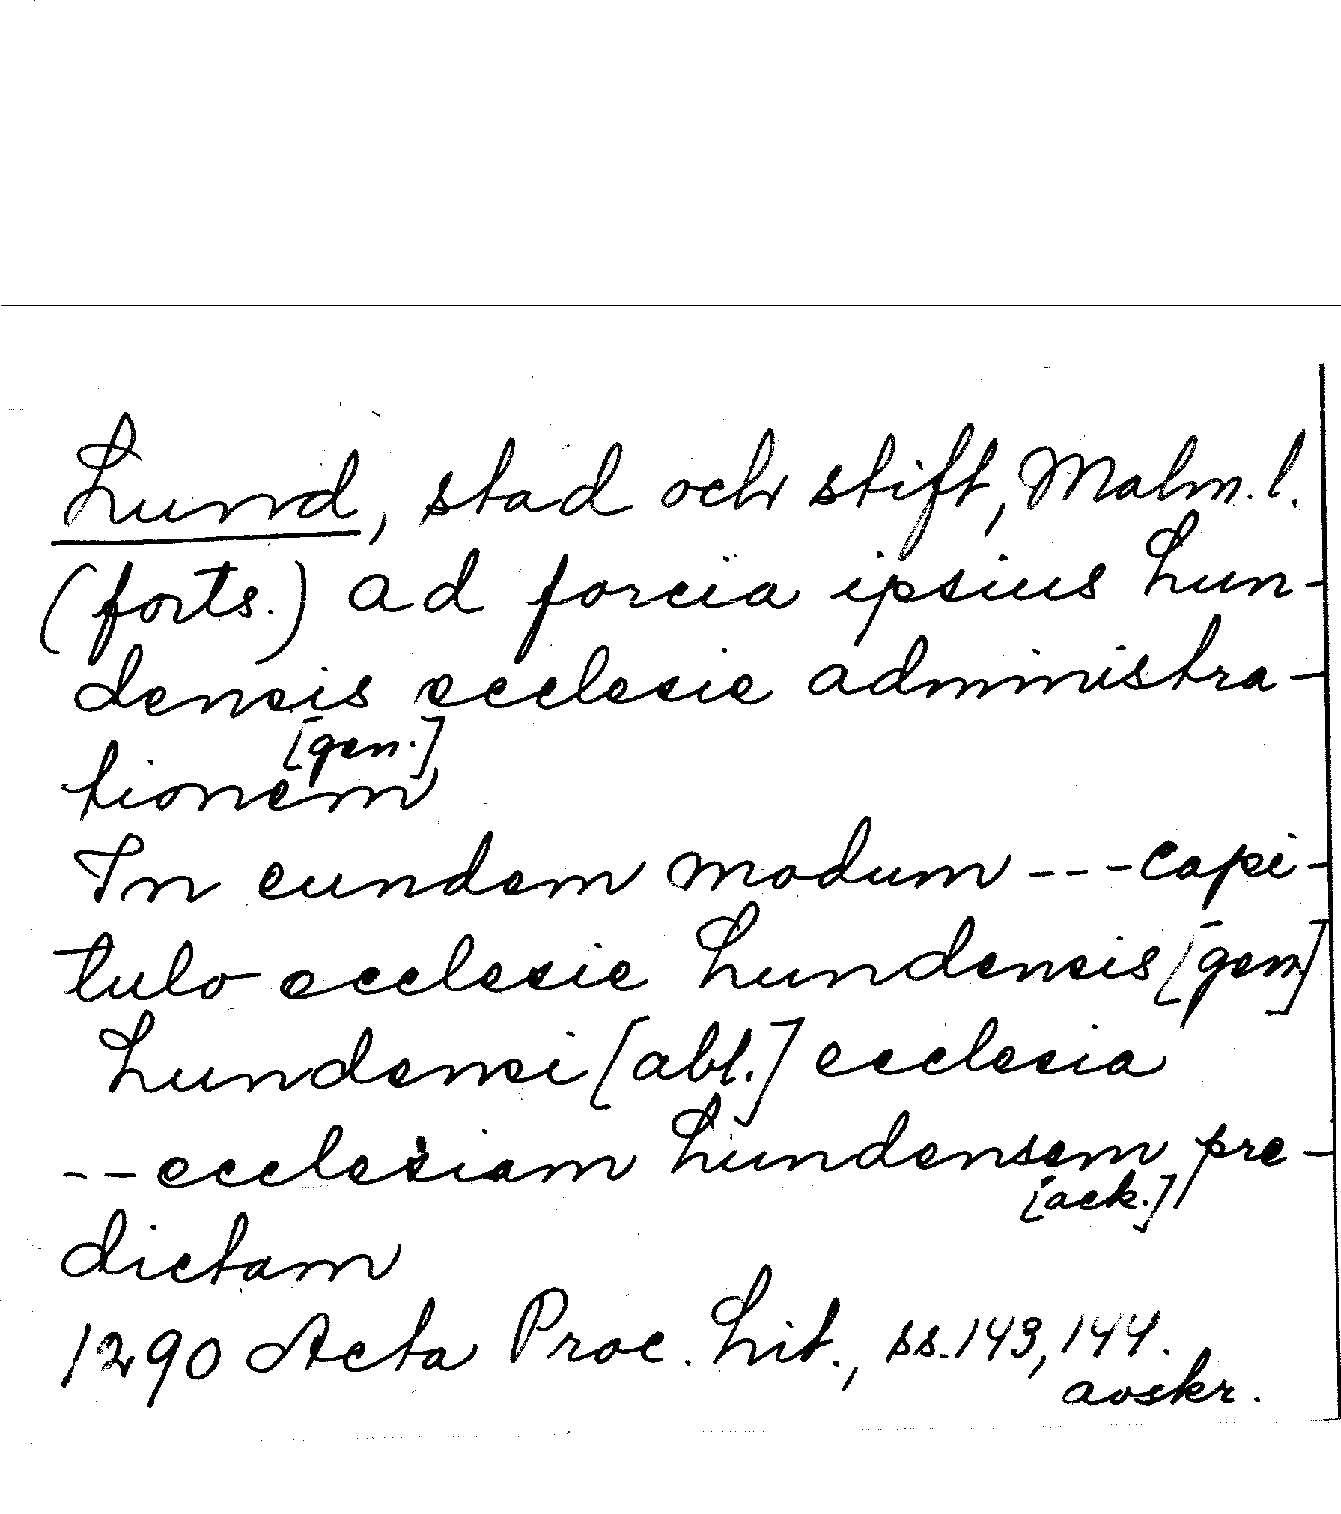 Lund, stad och stift, Malm. l.
(forts.) ad forcia ipsius Lun-
densis ecclesie administra-
[gen.]
tionem
In eundem modum --- capi-
tulo ecclesie Lundensis [gen]
Lundensi [abl.] ecclesia
-- ecclesiam Lundensem pre-
[ack.]
dictam
1290 Acta Proc. Lit., ss. 143, 144.
avskr.